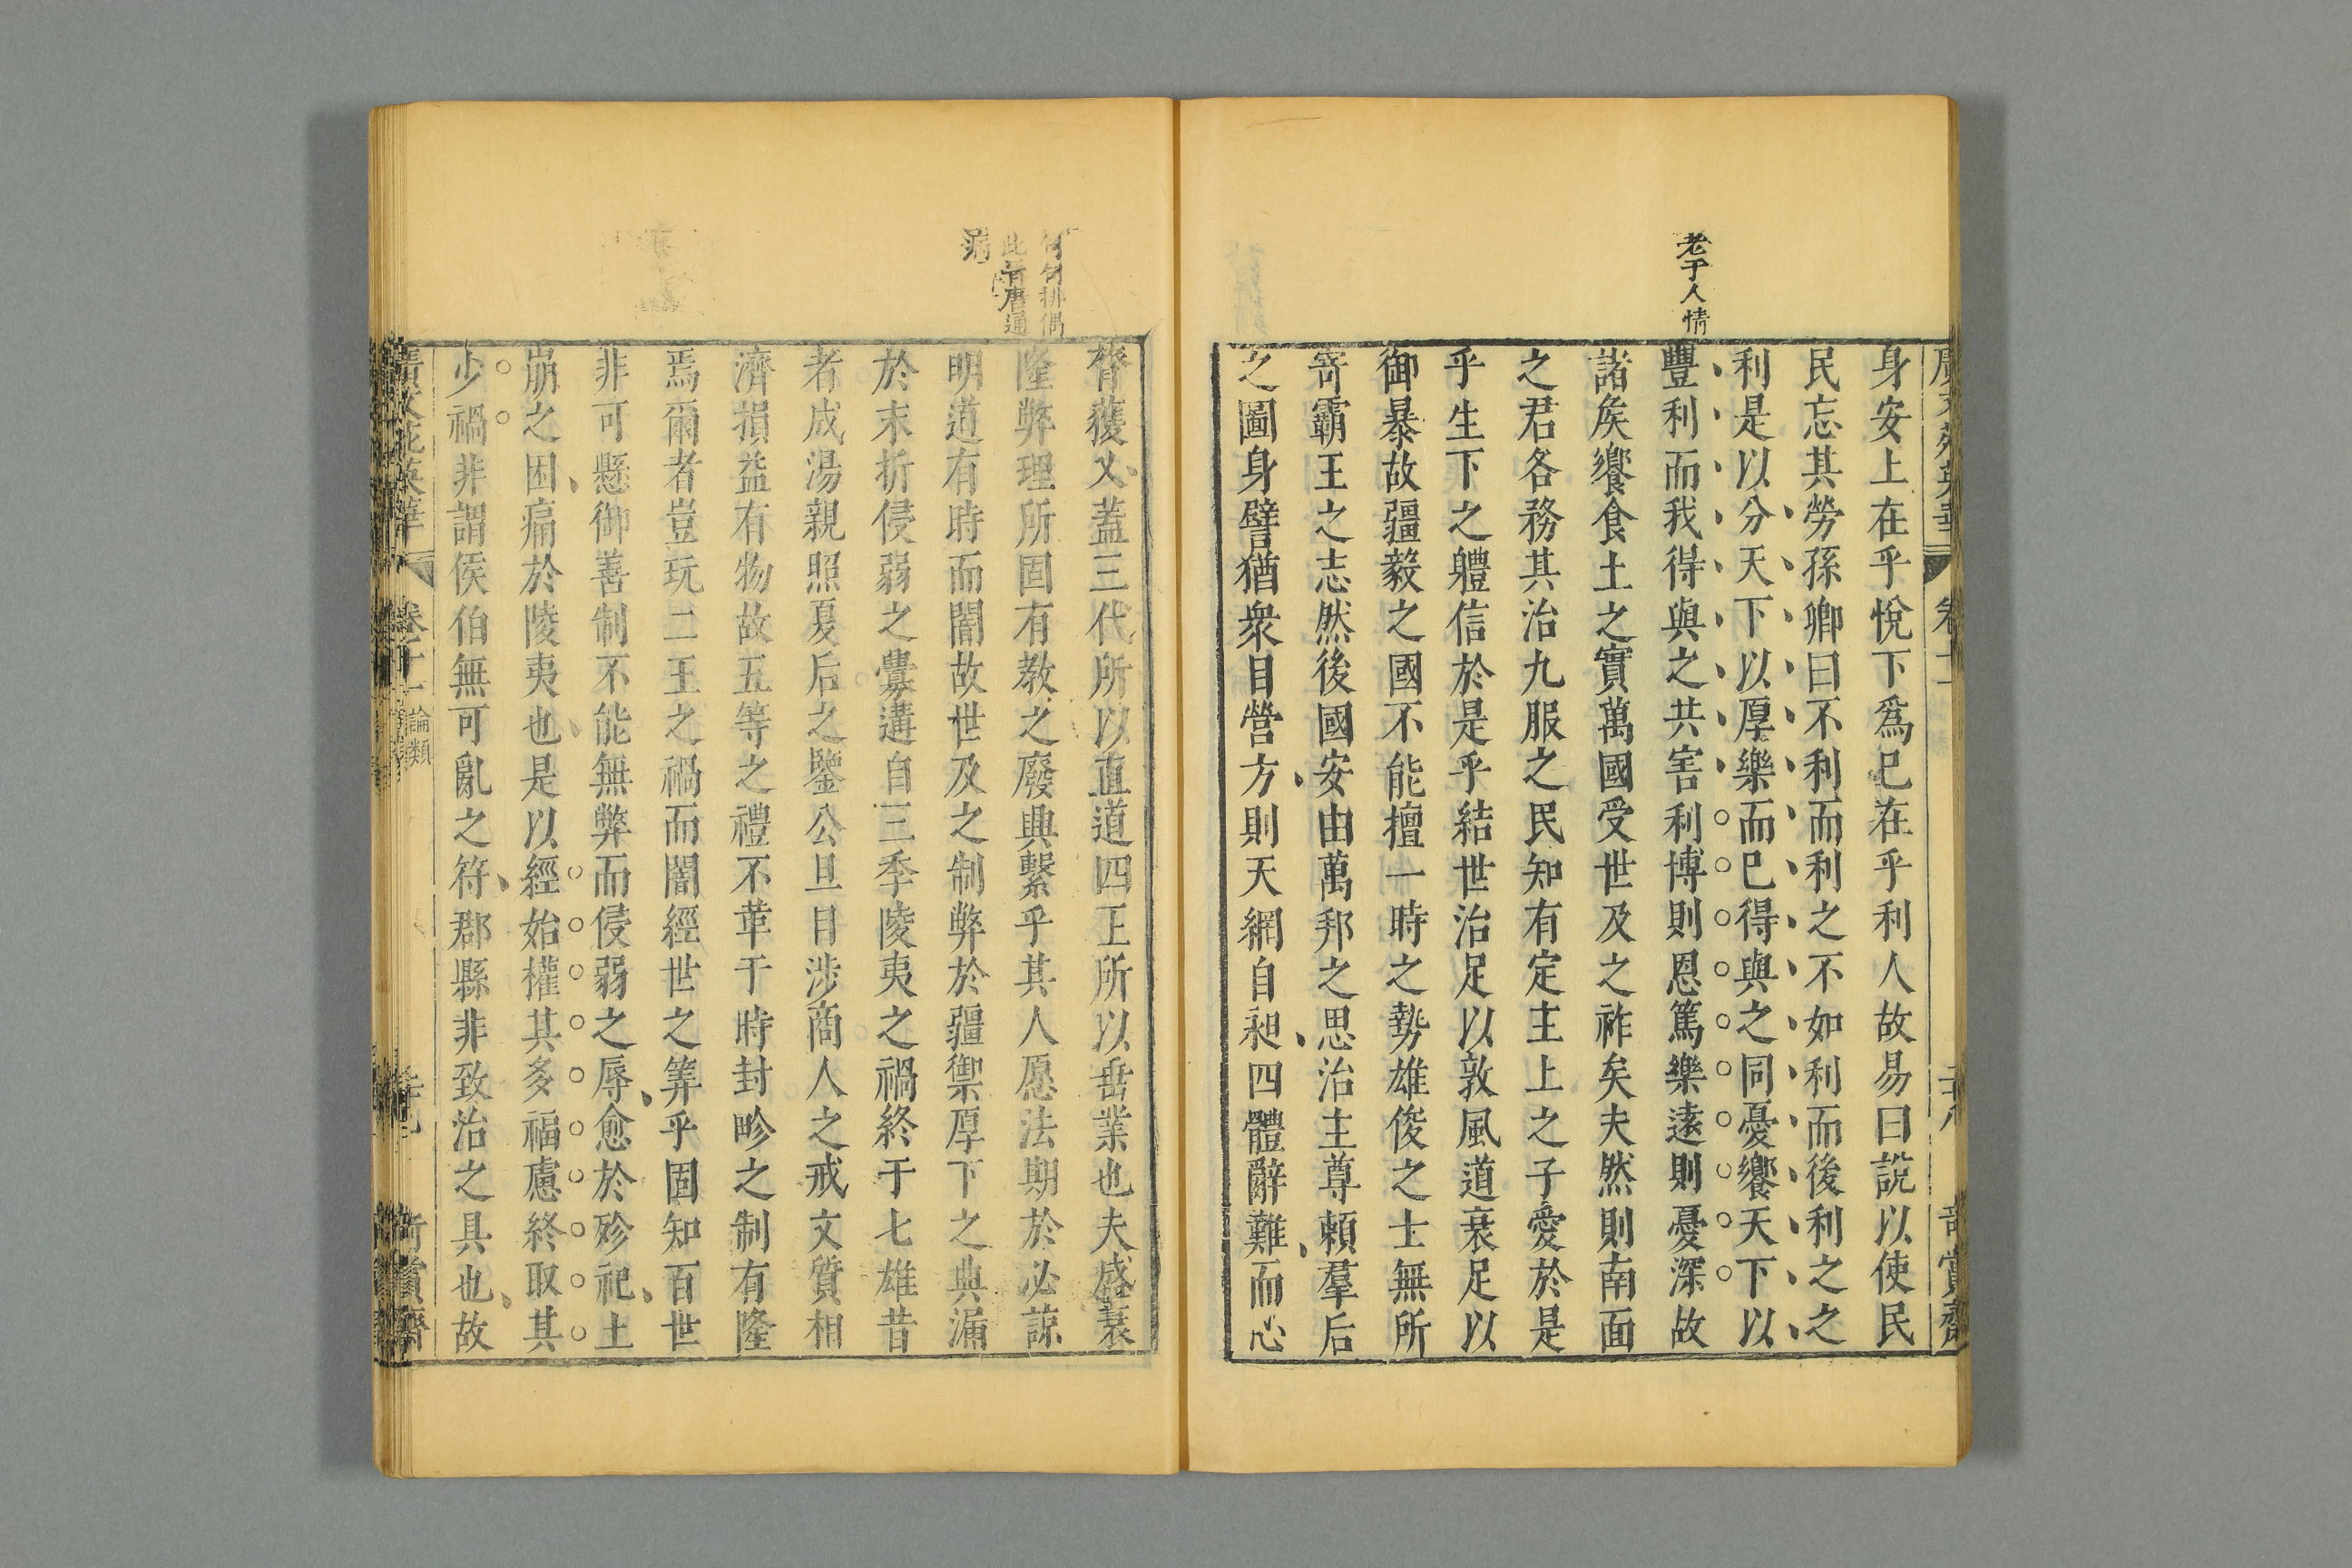 老于人情
身安上在乎悅下爲已在乎利人故易曰說以使民
民忘其勞孫卿曰不利而利之不如利而後利之之
利是以分天下以厚樂而已得與之同憂饗天下以
豐利而我得與之共害利博則恩篤樂遠則憂深故
諸矦饗食土之實萬國受世及之祚矣夫然則南面
之君各務其治九服之民知有定主上之子愛於是
乎生下之軆信於是乎結世治足以敦風道衰足以
御暴故疆毅之國不能擅一時之勢雄俊之士無所
寄霸王之志然後國安由萬邦之思治主尊賴羣后
之圖身譬猶衆目營方則天網自昶四體辭難而心
句句排偶
此晉唐通
病
膂獲乂蓋三代所以直道四王所以垂業也夫盛衰
隆弊理所固有教之廢興繫乎其人愿法期於必諒
明道有時而闇故世及之制弊於疆禦厚下之典漏
於末折侵弱之釁遘自三季陵夷之禍終于七雄昔
者成湯親照夏后之鑒公旦目涉商人之戒文質相
濟損益有物故五等之禮不革于時封畛之制有隆
焉爾者豈玩二王之禍而闇經世之筭乎固知百世
非可懸御善制不能無弊而侵弱之辱愈於殄祀土
崩之困痛於陵夷也是以經始權其多福慮終取其
少禍非謂侯伯無可亂之符郡縣非致治之具也故
廣文苑英華 卷十一 論類
奇賞齋